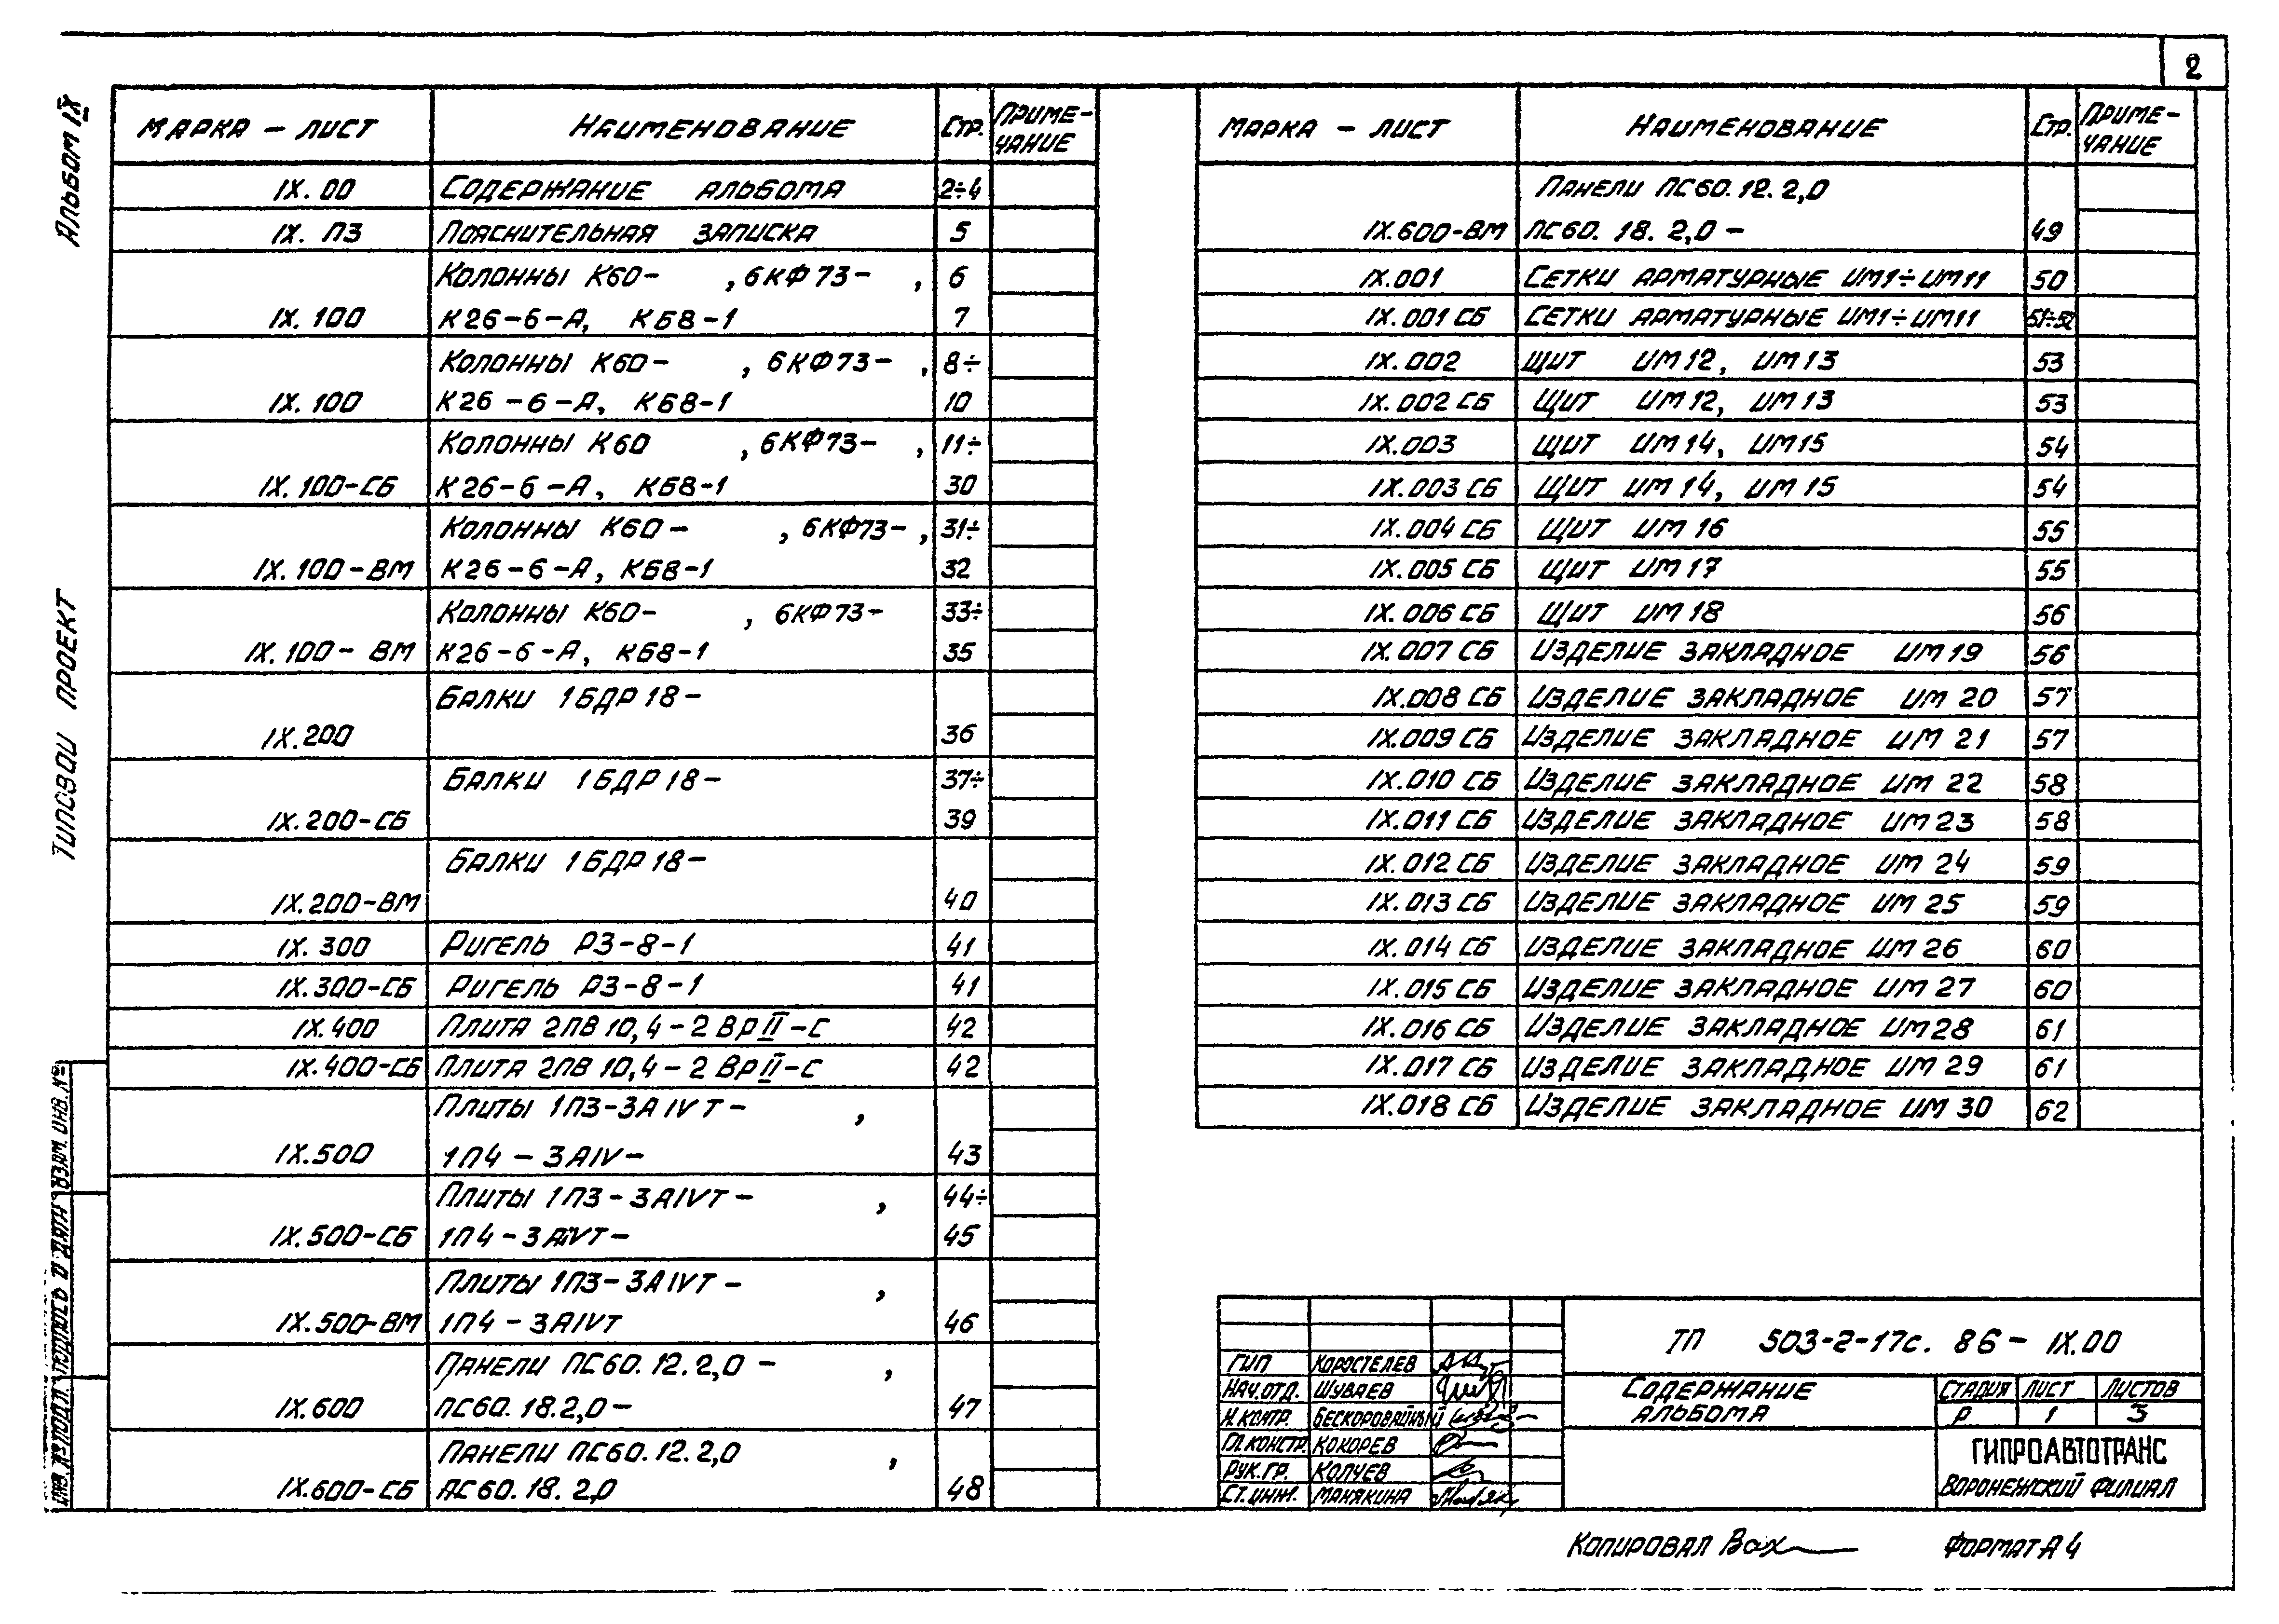 2
Альбом IX
Типовой проект
Марка – лист Наименование Стр. Приме-
чание
IX. 00 Содержание альбома 2÷4
IX. ПЗ Пояснительная записка 5
Колонны К60- , 6КФ73- , 6
IX. 100 К26-6-А, КБ8-1 7
Колонны К60- , 6КФ73- , 8÷
IX. 100 К26-6-А, КБ8-1 10
Колонны К60 , 6КФ73- , 11÷
IX. 100-СБ К26-6-А, КБ8-1 30
Колонны К60- , 6КФ73- , 31÷
IX. 100-ВМ К26-6-А, КБ8-1 32
Колонны К60- , 6КФ73- 33÷
IX. 100-ВМ К26-6-А, КБ8-1 35
Балки 1БДР18-
IX.200 36
Балки 1БДР18- 37÷
IX.200-СБ 39
Балки 1БДР18-
IX.200-ВМ 40
IX. 300 Ригель Р3-8-1 41
IX.300-СБ Ригель Р3-8-1 41
IX.400 Плита 2ПВ10,4-2ВрII-С 42
IX.400-СБ Плита 2ПВ10,4-2ВрII-С 42
Плиты 1П3-3АIVТ- ,
IX.500 1П4-3АIV- 43
Плиты 1П3-3АIVТ- , 44÷
IX.500-СБ 1П4-3АIVТ- 45
Плиты 1П3-3АIVТ- ,
IX.500-ВМ 1П4-3АIVТ 46
Панели ПС60.12.2,0- ,
IX.600 ПС60.18.2,0- 47
Панели ПС60.12.2,0 ,
IX.600-СБ ПС60.18.2,0 48
Марка – лист Наименование Стр. Приме-
чание
Панели ПС60.12.2,0
IX.600-ВМ ПС60.18.2,0- 49
IX.001 Сетки арматурные ИМ1÷ИМ11 50
IX.001 СБ Сетки арматурные ИМ1÷ИМ11 51÷52
IX.002 Щит ИМ12, ИМ13 53
IX.002 СБ Щит ИМ12, ИМ13 53
IX.003 Щит ИМ14, ИМ15 54
IX.003 СБ Щит ИМ14, ИМ15 54
IX.004 СБ Щит ИМ16 55
IX.005 СБ Щит ИМ17 55
IX.006 СБ Щит ИМ18 56
IX.007 СБ Изделие закладное ИМ19 56
IX.008 СБ Изделие закладное ИМ20 57
IX.009 СБ Изделие закладное ИМ21 57
IX.010 СБ Изделие закладное ИМ22 58
IX.011 СБ Изделие закладное ИМ23 58
IX.012 СБ Изделие закладное ИМ24 59
IX.013 СБ Изделие закладное ИМ25 59
IX.014 СБ Изделие закладное ИМ26 60
IX.015 СБ Изделие закладное ИМ27 60
IX.016 СБ Изделие закладное ИМ28 61
IX.017 СБ Изделие закладное ИМ29 61
IX.018 СБ Изделие закладное ИМ30 62
ТП 503-2-17с.86- IX.00
ГИП Коростелев
Нач.отд. Шуваев
Н.контр. Бескоровайный
Гл.констр. Кокорев
Рук.гр. Колчев
Ст.инж. Макякина
Содержание
альбома
Стадия Лист Листов
Р 1 3
ГИПРОАВТОТРАНС
Воронежский филиал
Инв.№ подл. Подпись и дата Взам. инв. №
Копировал Вах Формат А4